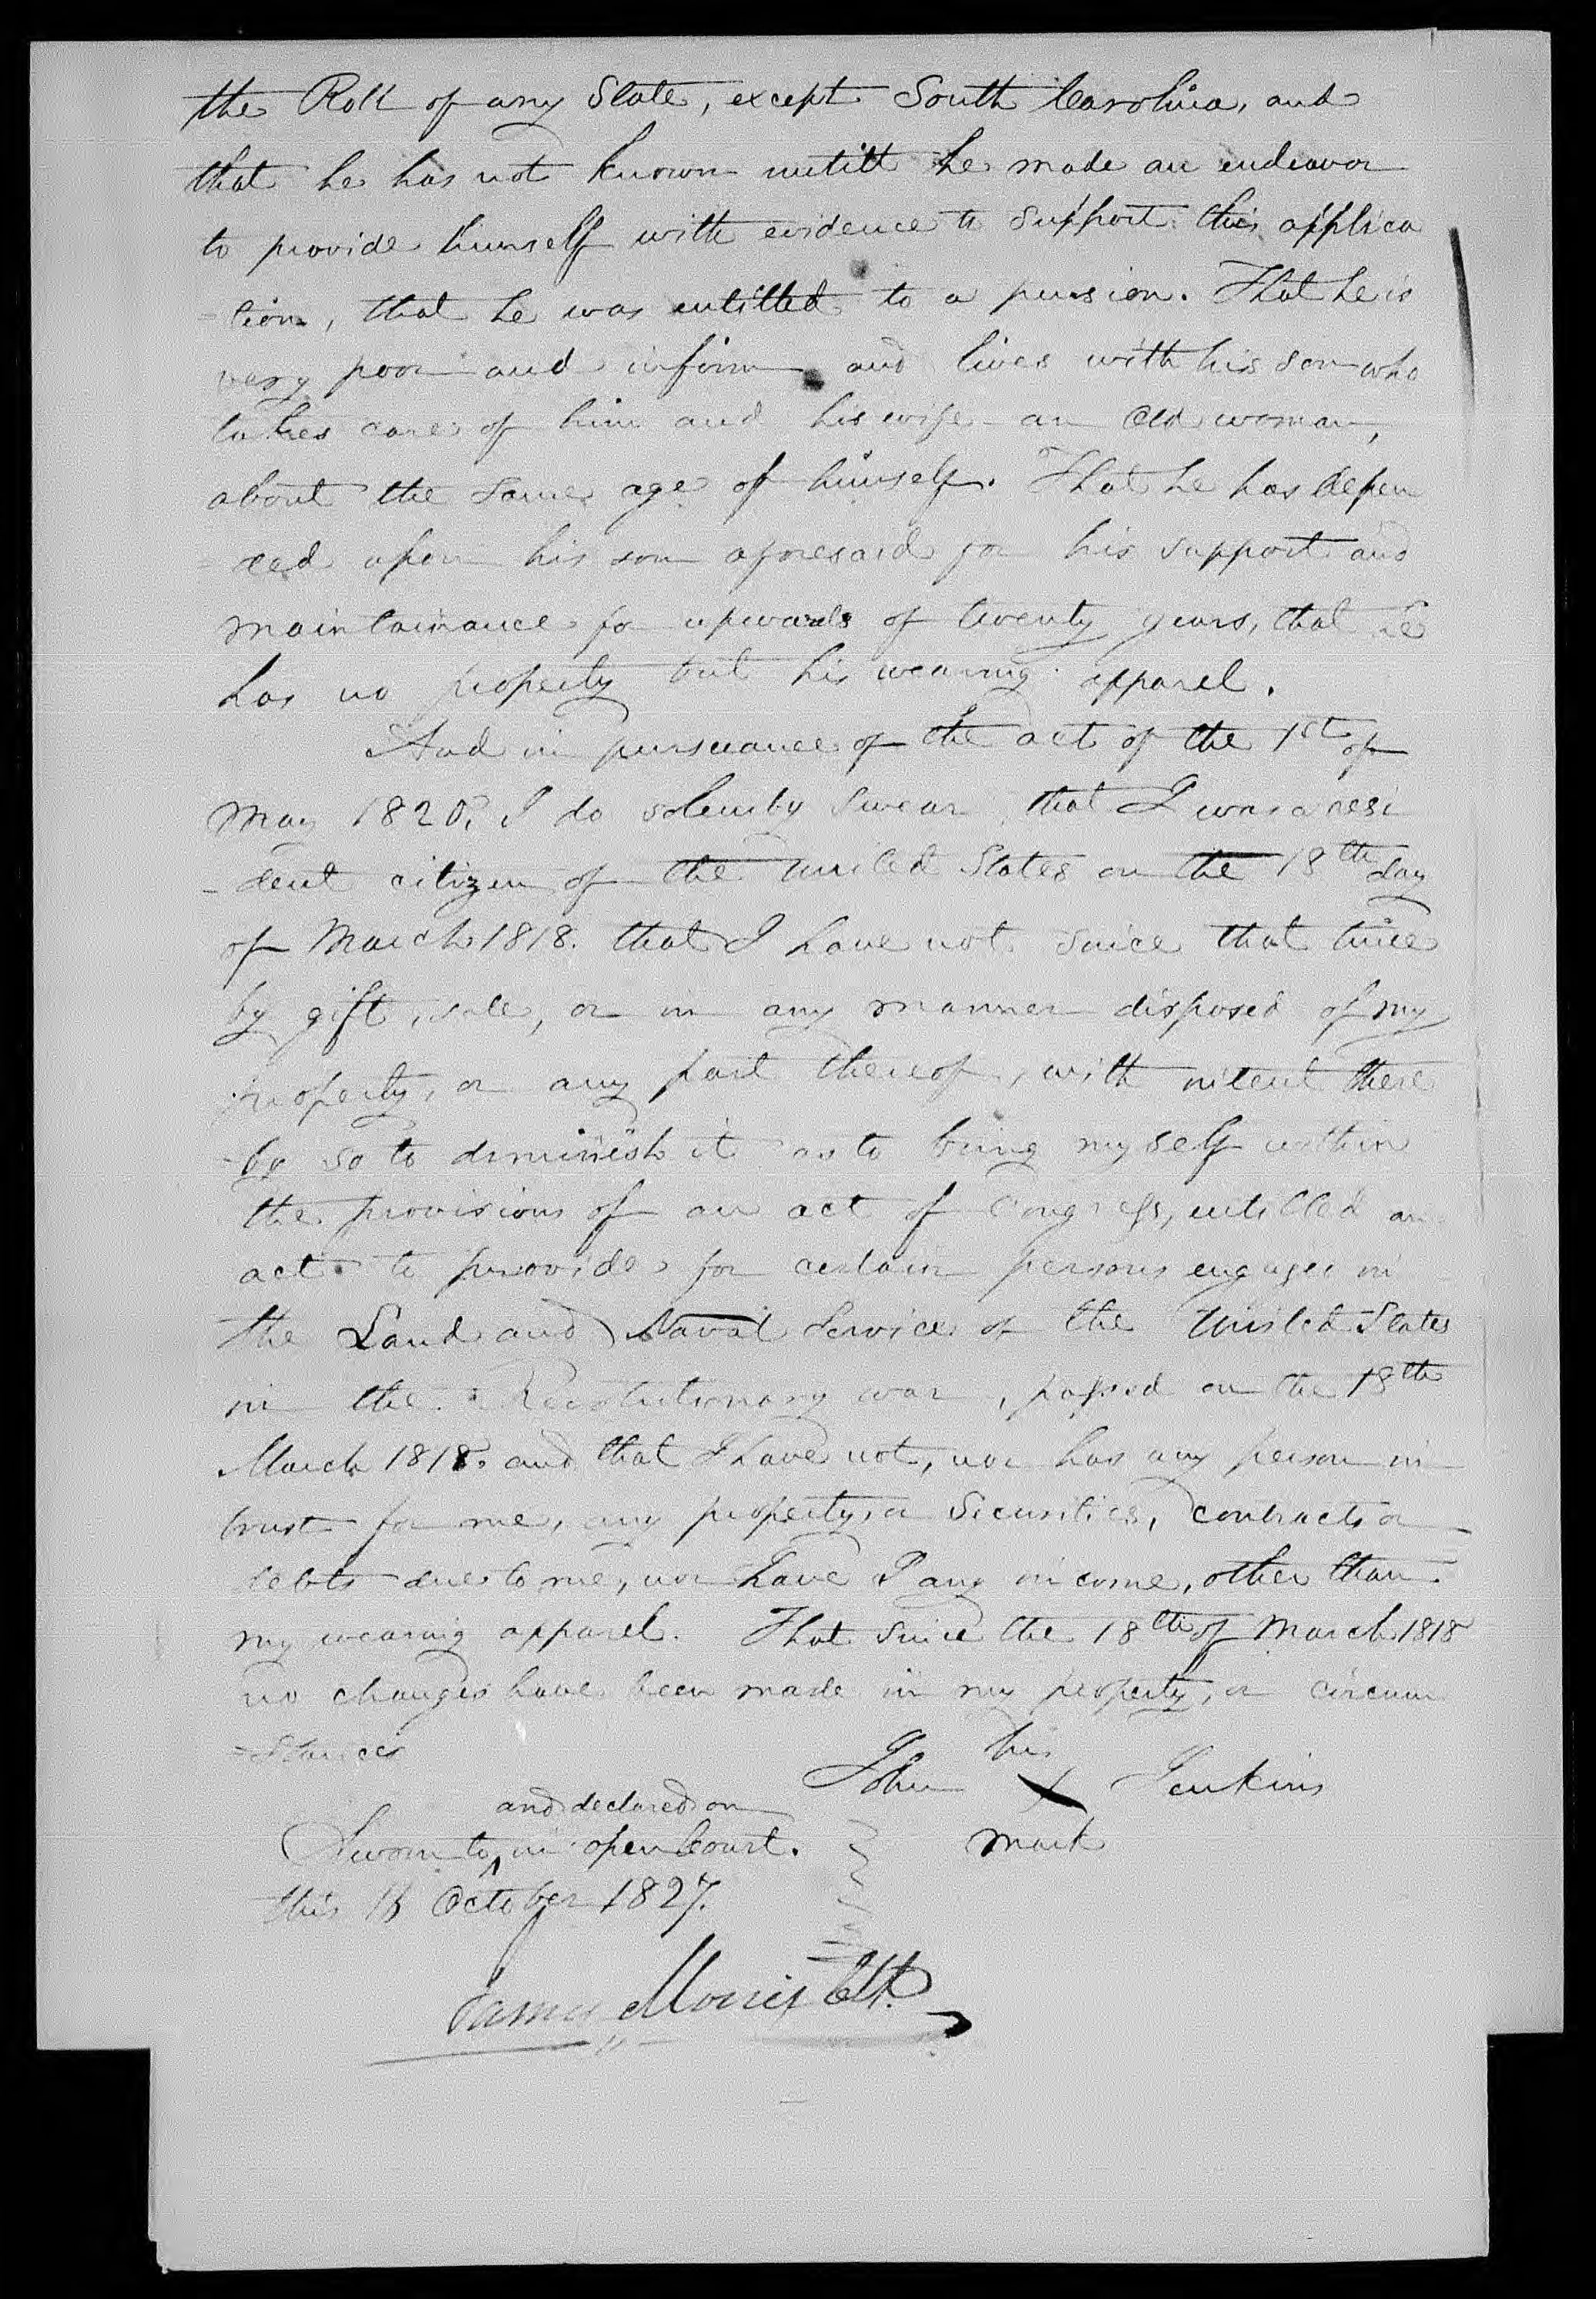 the Roll of any State, except South Carolina, and
that he has not known untill he made an endeavor
to provide himself with evidence to support this applica
-tion, that he was entitled to a pension. That he is
very poor and infirm and lives with his son who
takes care of him and his wife an old woman,
about the same age of himself. That he has depen
-ded upon his son aforesaid for his support and
maintainance for upwards of twenty years, that he
has no property but his wearing apparel.
And in pursuance of the act of the 1st of
May 1820, I do solemnly swear that I was a resi
-dent citizen of the United States on the 18th day
of March 1818. that I have not since that time
by gift, sale, or in any manner disposed of my
property, or any part thereof, with intent there
-by so to diminish it as to bring myself within
the provisions of an act of Congress, entitled an
act to provide for certain persons engaged in
the Land and Naval Service of the United States
in the Revolutionary war, passed on the 18th
March 1818. and that I have not, nor has any person in
trust for me, any property or securities, contracts or
debts due to me, nor have I any income, other than
my wearing apparel. That since the 18th of March 1818
no changes have been made in my property, or circum
-stances
his
John X Jenkins
mark
and declared on
Sworn to ^ in open Court.
this October 1827.
James Morris Clk.